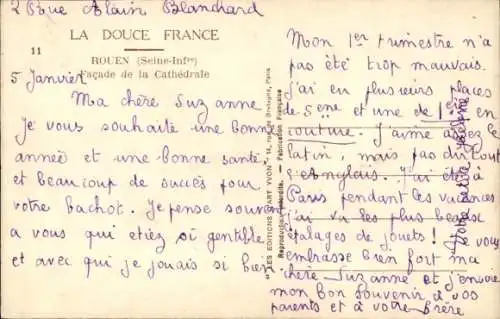 2 Rue Alain Blanchard
LA DOUCE FRANCE
11
ROUEN (Seine-Infre)
Façade de la Cathédrale
5 Janvier
Ma chère Suzanne
Je vous souhaite une bonne
année et une bonne santé,
et beaucoup de succès pour
votre bachot. Je pense souvent
a vous qui etiez si gentille
et avec qui je jouais si bien
LES EDITIONS D'ART YVON
Fabrication Française
Mon 1er trimestre n'a
pas été trop mauvais.
j'ai en plusieurs places
de 5ème et une de 1ère en
couture. J'aime assez le
latin, mais pas du tout
l'Anglais. J'ai été à
Paris pendant les vacances
j'ai vu les plus beaux
étalages de jouets ! Je vous
embrasse bien fort ma
chère Suzanne et j'envoie
mon bon souvenir à vos
parents et à votre frère
Votre petite